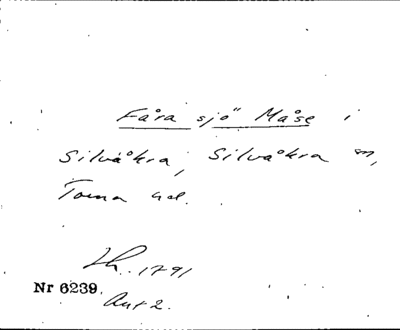 Fåra sjö Måse i
Silvåkra, Silvåkra sn,
Torna hd.
Lh. 1791
Nr 6239.
Akt 2.